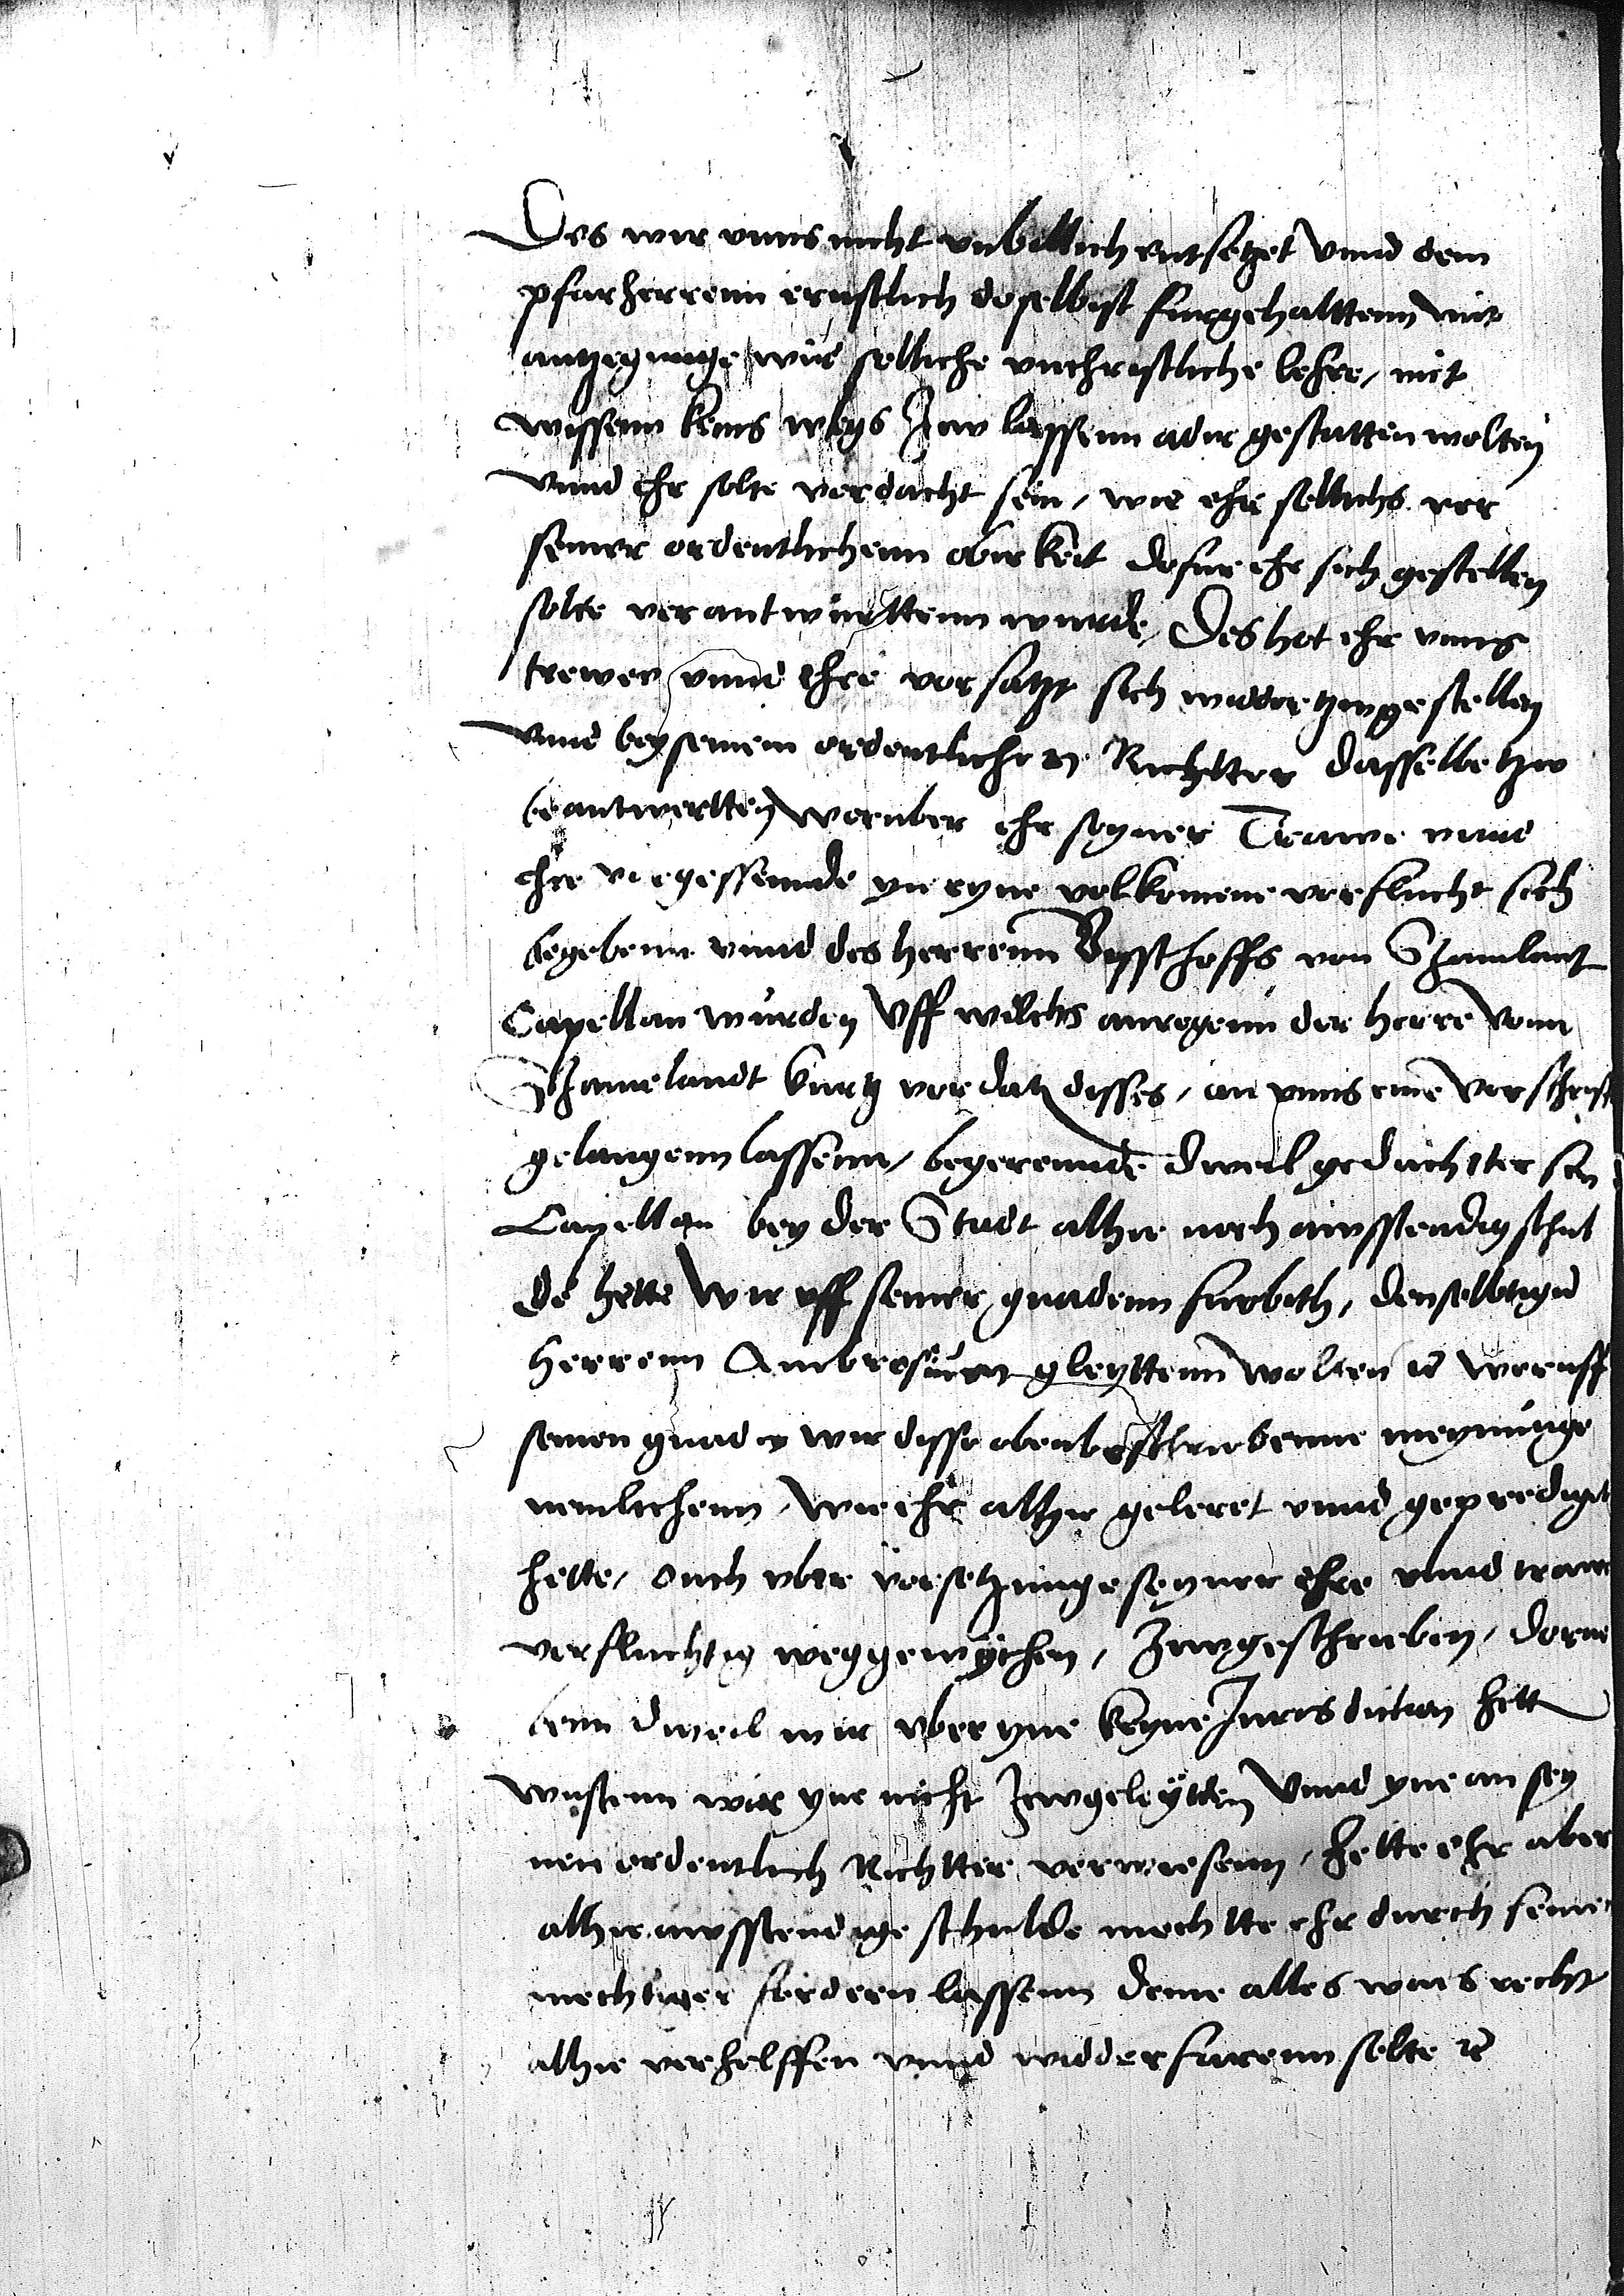 Des wir vnns nicht vnbillich entsetzet vnnd dem
pfarherrenn ernstlich doselbist furgehalttenn mit
antzeigunge wir solliche vnchristliche lehre, mit
wissenn keins wegs zcw lassenn ader gestatten wolten
vnnd ehr solte verdacht sein, wie ehr sollichs vor
seiner ordentlichenn obirkeit dofur ehr sich gestellen
solte verantwurttenn wurde, Des hot ehr vnns
trewen vnnd ehre vorsatzt sich widder tzugestellen
vnnd bey seinem ordentlichen Richtter dasselbe tzw
beantwortten, Woruber ehr seyner Trawe vnnd
ehre vorgessennde yn eyne volkomene vorflucht sich
begebenn vnnd des herrenn Bysschoffs von Szamlant
Capellan wurden Vff wilchs anregenn der herre vonn
Szamelandt kurtz vor datz disses, an vnns eine vorschrifft
gelangenn lassenn, begerennde dweil gedachtter sein
Capellan bey der Stadt alhie noch awsstendig schul
de hette Wir vff seiner gnadenn furbith, denselbtigen
herrenn Ambrosium gleyttenn wolten etc Woruff
seinen gnaden wir disse obenbeschriebenne meynunge
nemlichenn, Wie ehr alhie geleret vnnd geprediget
hette, ouch vber vorsetzunge seyner ehre vnnd trawe
verfluchtig weggewychen, zcugeschrieben, dorne
benn dweil wir vber yne keyne Jurisdiction hett
wusten wir yne nicht zcw geleytten Vnnd yne an sey
nen ordentlich Richtter verwiesenn, hette ehr aber
alhie awsstendige schulde mochtte ehr durch seine
mechtiger fordern lassenn deme alles wues recht
alhie verhelffen vnnd widderfarenn solte etc